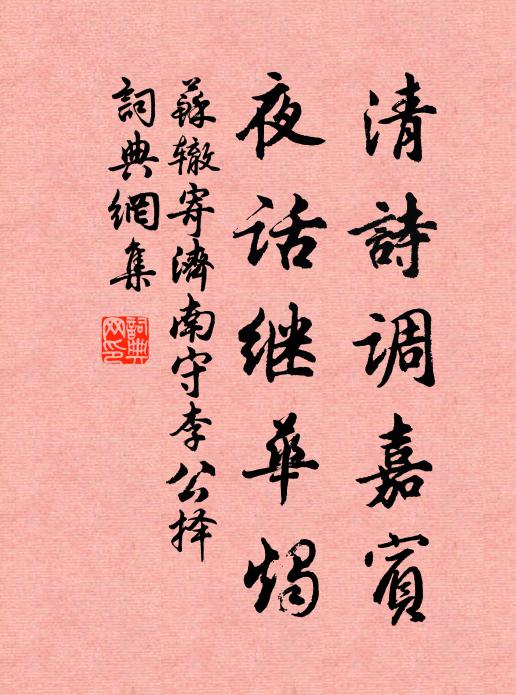 清詩調嘉賓
夜话继華燭
蘇辙寄濟南守李公择
詞典網集
詞典網印